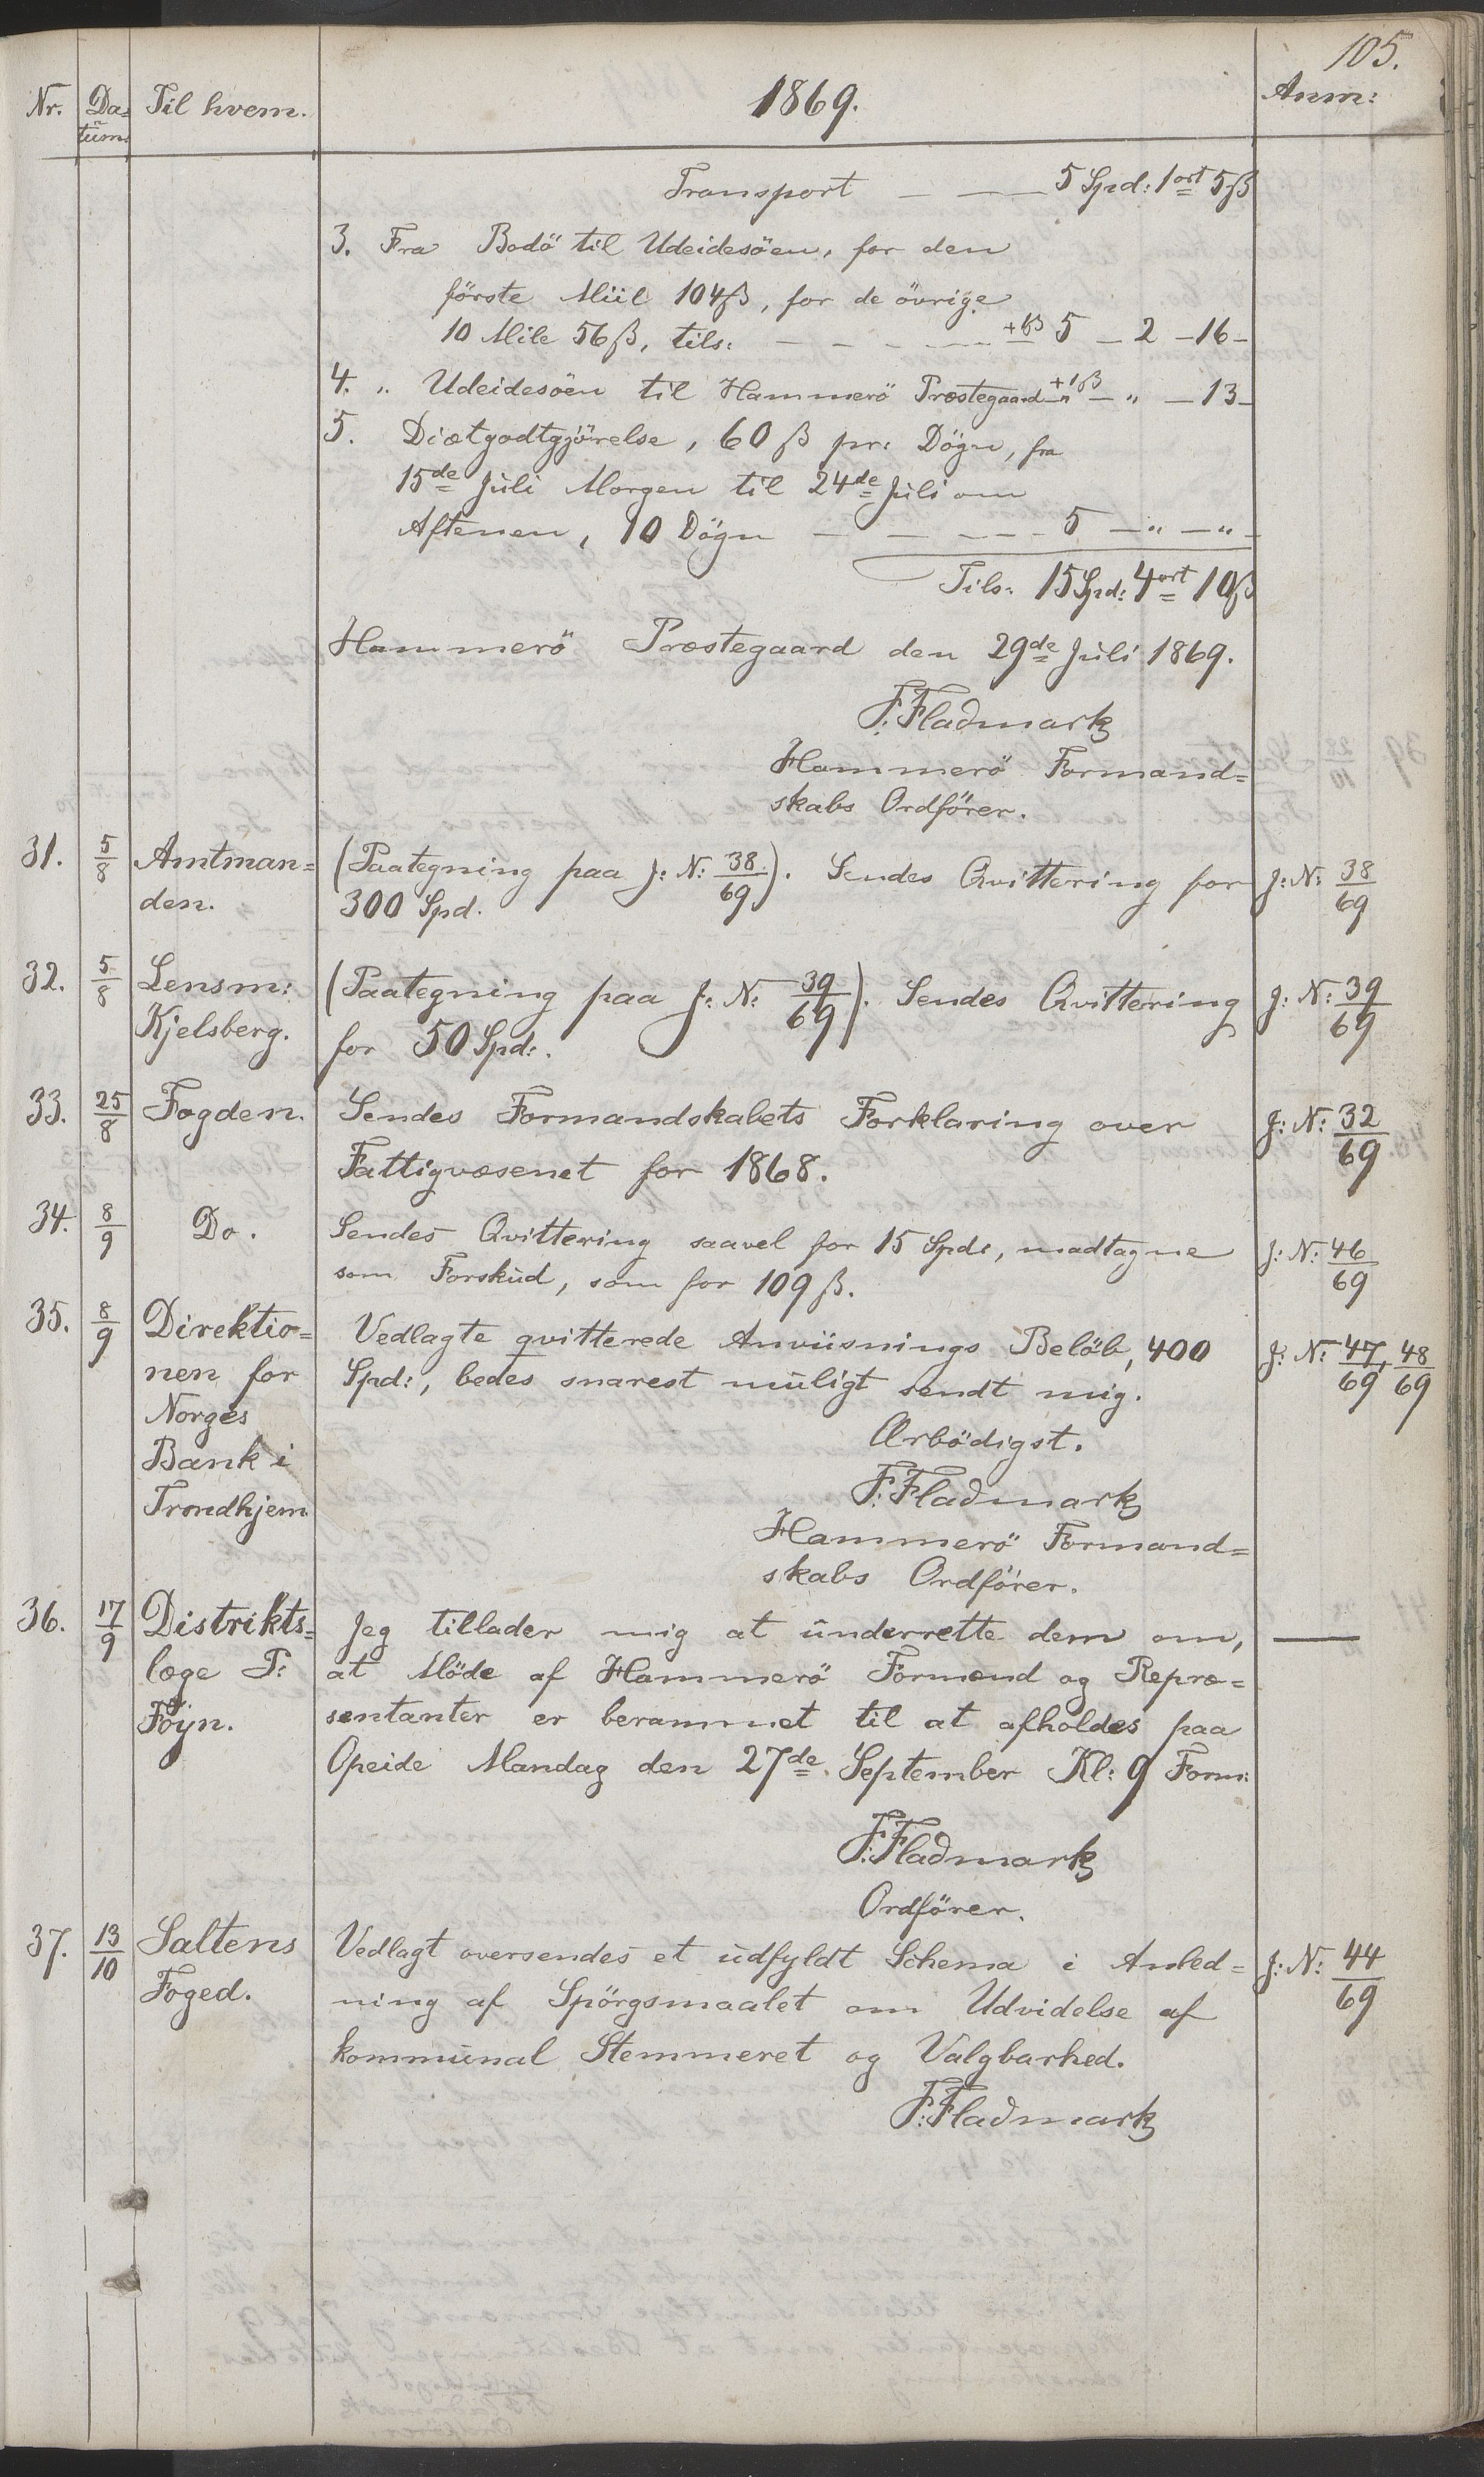 105.
Nr. Da= Til hvem. 1869. Anm:
tum
Transport — — 5 Spd: 1 ort 5 ß
3. Fra Bodö til Udeidesöen, for den
förste Miil 104 ß, for de övrige
10 Mile 56 ß, tils: — — — 5 — 2 — 16 —
4. „ Udeidesöen til Hammerö Præstegaard +1ß „ — „ — 13 —
5. Diætgodtgjörelse, 60 ß pr: Dögn, fra
15de Juli Morgen til 24de Juli om
Aftenen, 10 Dögn — — — 5 — „ — „ —
Tils: 15 Spd: 4 ort 10 ß
Hammerö Præstegaard den 29de Juli 1869.
F. Fladmark
Hammerö Formand=
skabs Ordförer.
31. 5/8 Amtman= (Paategning paa J: N: 38/69). Sendes Qvittering for J: N: 38/69
den. 300 Spd.
32. 5/8 Lensm: (Paategning paa J: N: 39/69). Sendes Qvittering J: N: 39/69
Kjelsberg. for 50 Spd:.
33. 25/8 Fogden. Sendes Formandskabets Forklaring over J: N: 32/69
Fattigvæsenet for 1868.
34. 8/9 Do. Sendes Qvittering saavel for 15 Spd:, modtagne J: N: 46/69
som Forskud, som for 109 ß.
35. 8/9 Direktio= Vedlagte qvitterede Anviisnings Belöb, 400 J: N: 47/69, 48/69
nen for Spd:, bedes snarest muligt sendt mig.
Norges Ærbödigst.
Bank i F. Fladmark
Trondhjem. Hammerö Formand=
skabs Ordförer.
36. 17/9 Distrikts= Jeg tillader mig at underrette dem om, —
læge T: at Möde af Hammerö Formænd og Repræ=
Föyn. sentanter er berammet til at afholdes paa
Opeide Mandag den 27de September Kl: 9 Form:
F. Fladmark
Ordförer.
37. 13/10 Saltens Vedlagt oversendes et udfyldt Schema i Anled= J: N: 44/69
Foged. ning af Spörgsmaalet om Udvidelse af
kommunal Stemmeret og Valgbarhed.
F. Fladmark